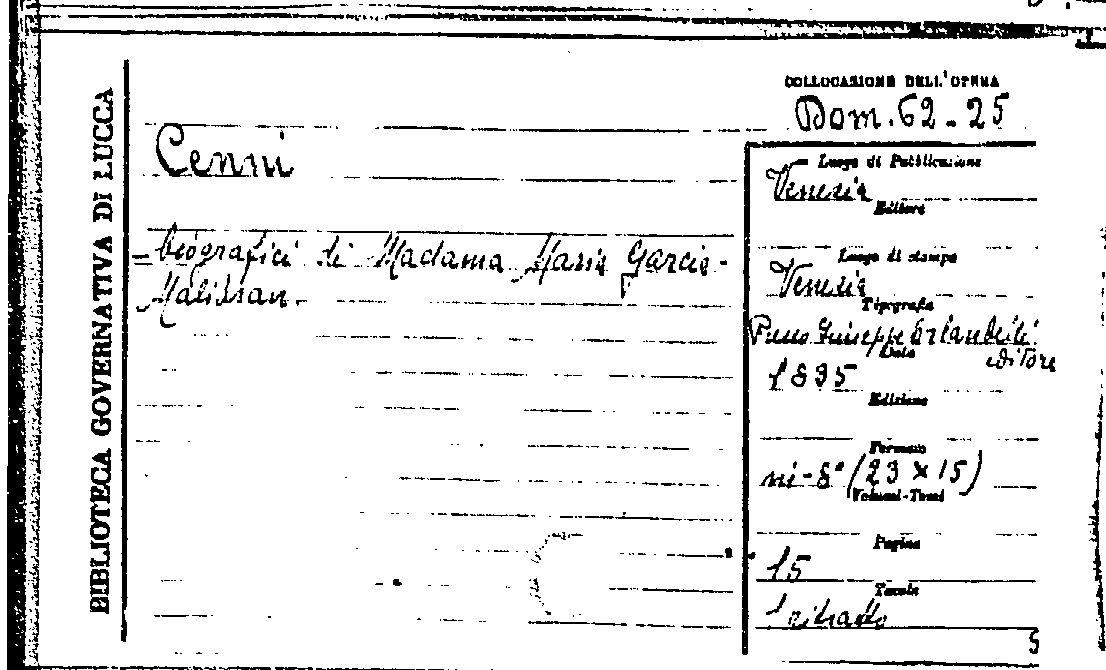 BIBLIOTECA GOVERNATIVA DI LUCCA
COLLOCAZIONE DELL'OPERA
Dom. 62-25
Cenni
biografici di Madama Maria Garcia-
Malibran.
Luogo di Pubblicazione
Venezia
Editore
Luogo di stampa
Venezia
Tipografia
Giuseppe Orlandelli
editore
Data
1835
Edizione
Formato
in-8° (23 x 15)
Volumi-Tomi
Pagine
15
Tavole
1 ritratto